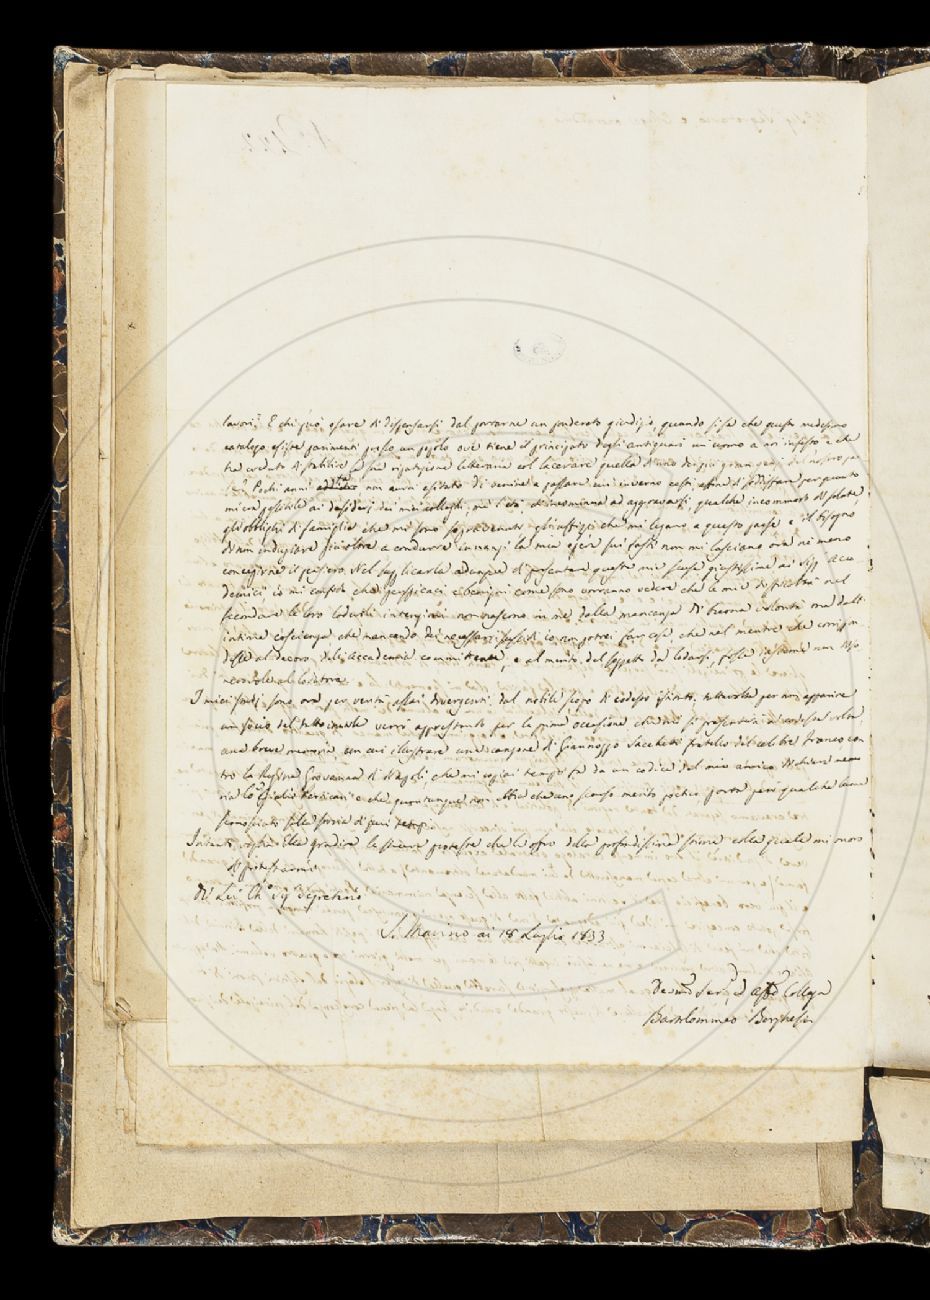 lavori? E chi può osare di dispensarsi dal portarne un ponderato giudizio, quando si sa che questo medesimo
catalogo esiste parimenti presso un popolo ove tiene il principato degli antiquari un uomo a noi infesto e che
ha creduto di stabilire la sua riputazione letteraria col lacerare quella d'uno dei più gran genj del nostro pae
se? Pochi anni addietro non avrei esitato di venire a passare un inverno costì, affine di soddisfare per quanto
mi era possibile ai desiderj dei miei colleghi, ma l'età che incomincia ad aggravarsi, qualche incommodo di salute,
gli obblighi di famiglia che mi sono sopravvenuti, gli uffizj che mi legano a questo paese e il bisogno
di non indugiare più oltre a condurre innanzi la mia opera sui Fasti non mi lasciano ora nè meno
concepirne il pensiero. Nel supplicarla adunque di presentare queste mie scuse giustissime ai Sigg. Acca
demici io mi confido che perspicaci e benigni come sono vorranno vedere che le mie difficoltà nel
secondare le loro lodevoli intenzioni non nascono in me dalla mancanza di buona volontà ma dall'
intima coscienza che mancando dei necessari sussidi io non potrei fare cosa, che nel mentre che corrispon
desse al decoro dell'Accademia committente, e al merito del soggetto da lodarsi, fosse insieme non diso
norevole al lodatore.
I miei studi sono ora per verità assai divergenti dal nobile scopo di codesto istituto, tuttavolta per non apparire
un socio del tutto inutile verrò apprestando per la prima occasione che mi si presenterà
una breve memoria con cui illustrare una canzone di Giannozzo Sacchetti fratello del celebre Franco con
tro la Regina Giovanna di Napoli, che mi copiai tempo fa da un codice del mio amico
Giulio Perticari e che quantunque non abbia che uno scarso merito poetico porta però qualche lume
sulla storia di quei tempi.
Intanto voglia Ella gradire le sincere proteste che le offro della profondissima stima colla quale mi onoro
di protestarmi
Di Lei Ch.° Sig.r Segretario
S. Marino ai 18 Luglio 1833
Devmo Ser.e ed affmo Collega
Bartolommeo Borghesi